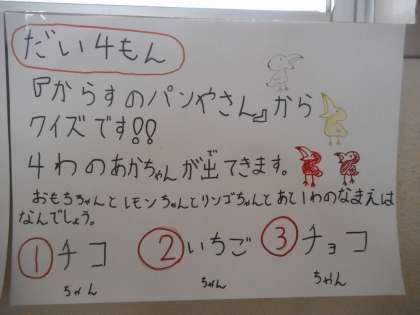 だい4もん
『からすのパンやさん』から
クイズです!!
4わのあかちゃんが出てきます。
で
おもちちゃんとレモンちゃんとリンゴちゃんとあと1わのなまえは
なんでしょう。
①チコ ②いちご ③チョコ
ちゃん ちゃん ちゃん